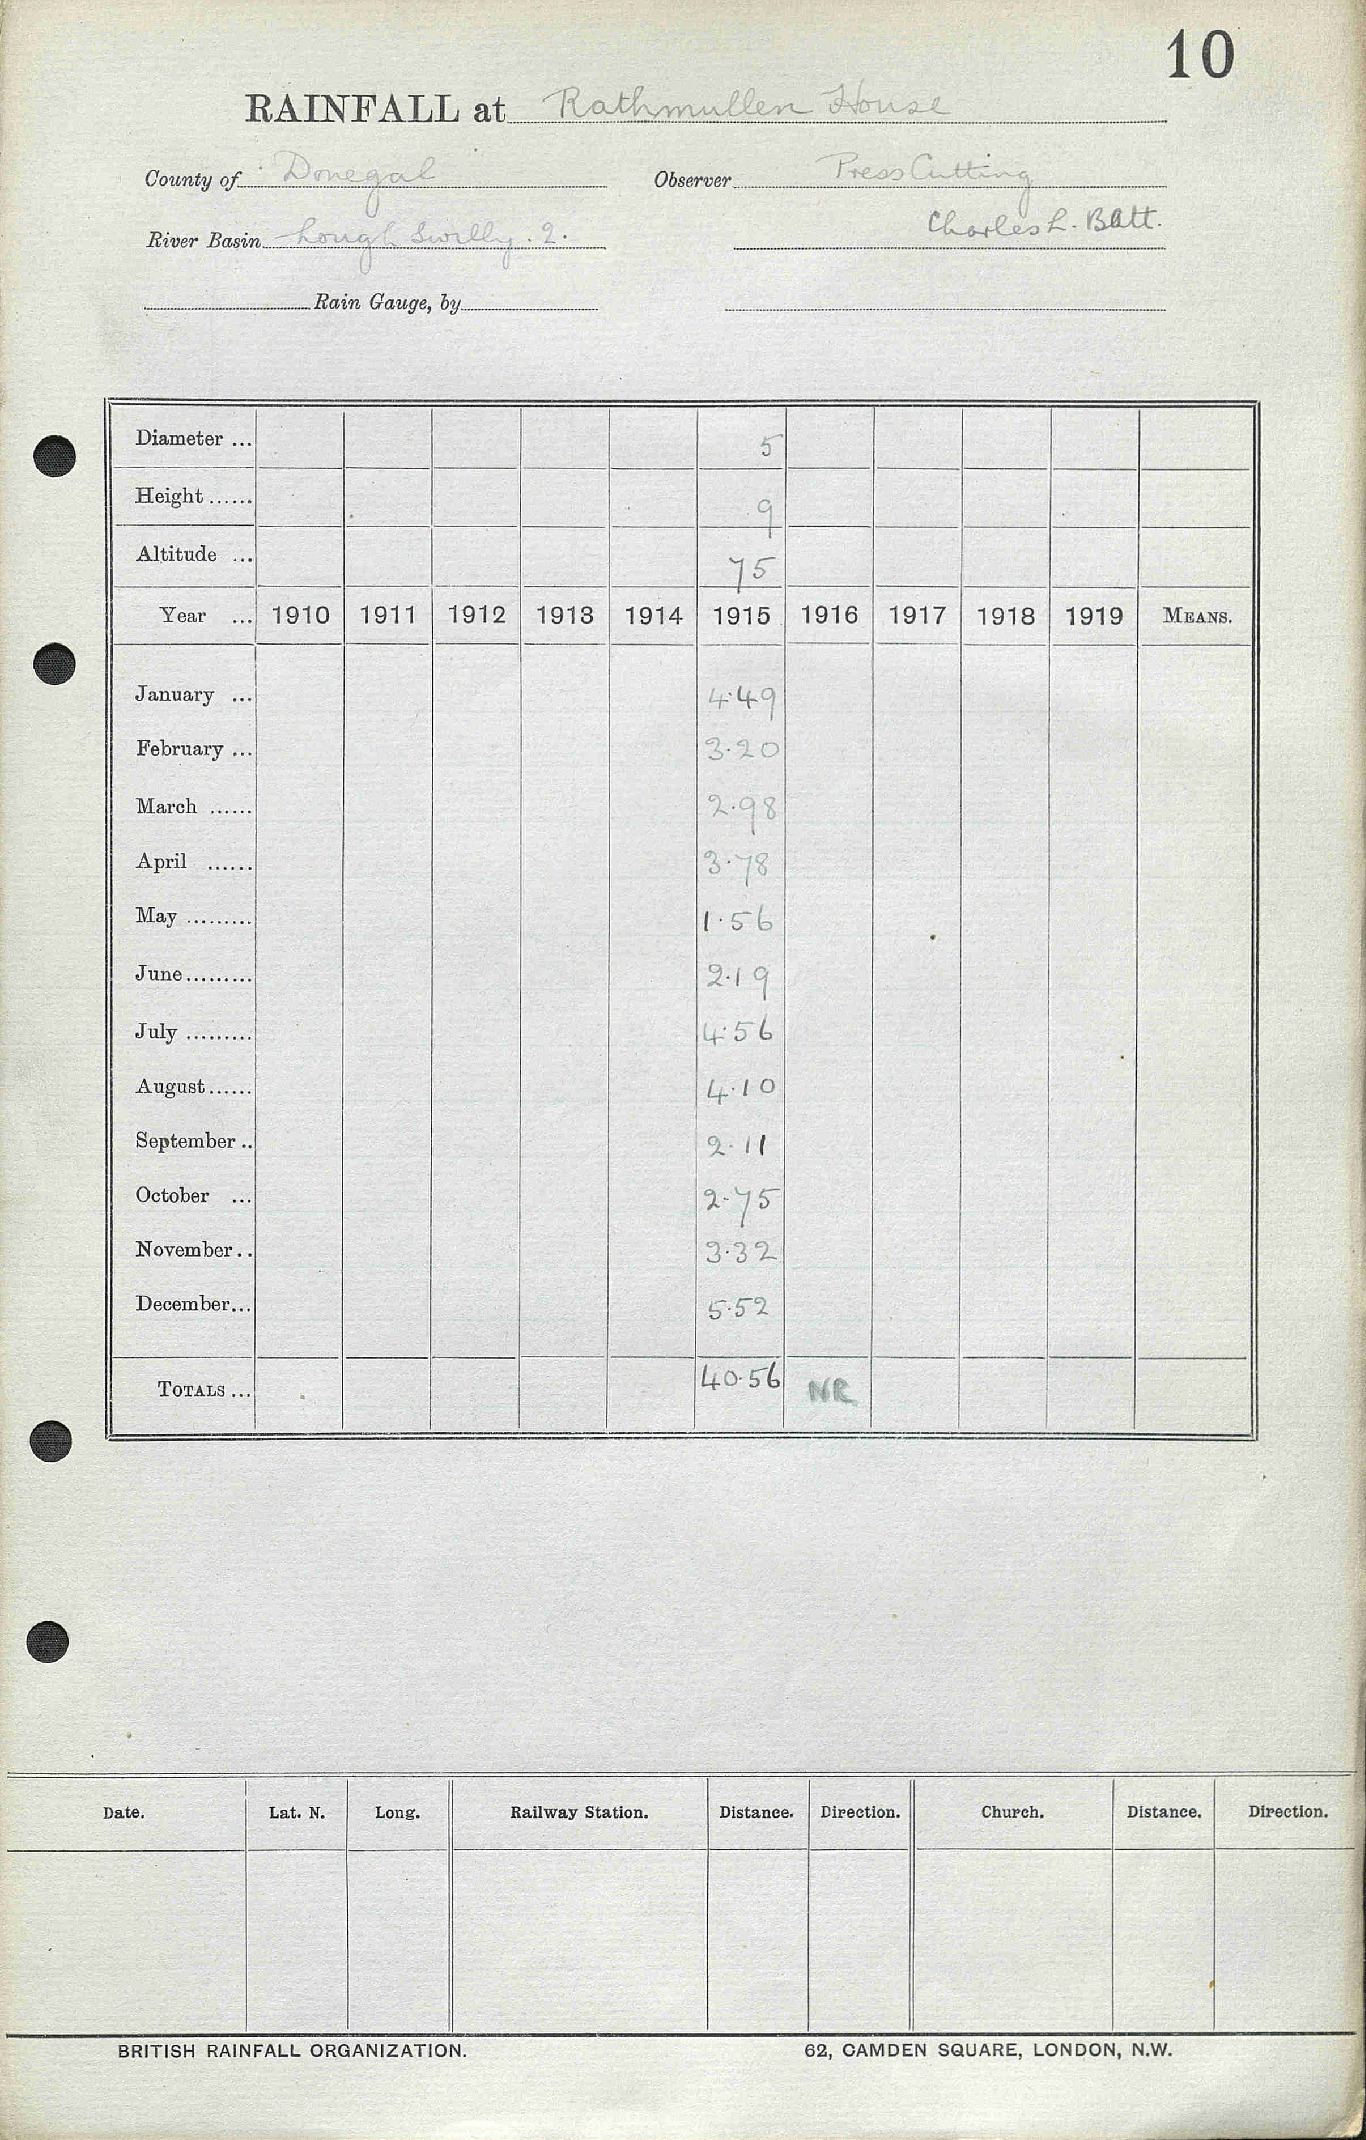 10
RAINFALL at Rathmullen House
County of Donegal Observer Press Cutting
River Basin Lough Swilly. 2. Charles L. Batt.
Rain Gauge, by
Diameter ... 5
Height ...... 9
Altitude ... 75
Year ... 1910 1911 1912 1913 1914 1915 1916 1917 1918 1919 MEANS.
January ... 4.49
February ... 3.20
March ...... 2.98
April ...... 3.78
May ......... 1.56
June ......... 2.19
July ......... 4.56
August ...... 4.10
September .. 2.11
October ... 2.75
November .. 3.32
December ... 5.52
TOTALS ... 40.56 NR
Date. Lat. N. Long. Railway Station. Distance. Direction. Church. Distance. Direction.
BRITISH RAINFALL ORGANIZATION. 62, CAMDEN SQUARE, LONDON, N.W.